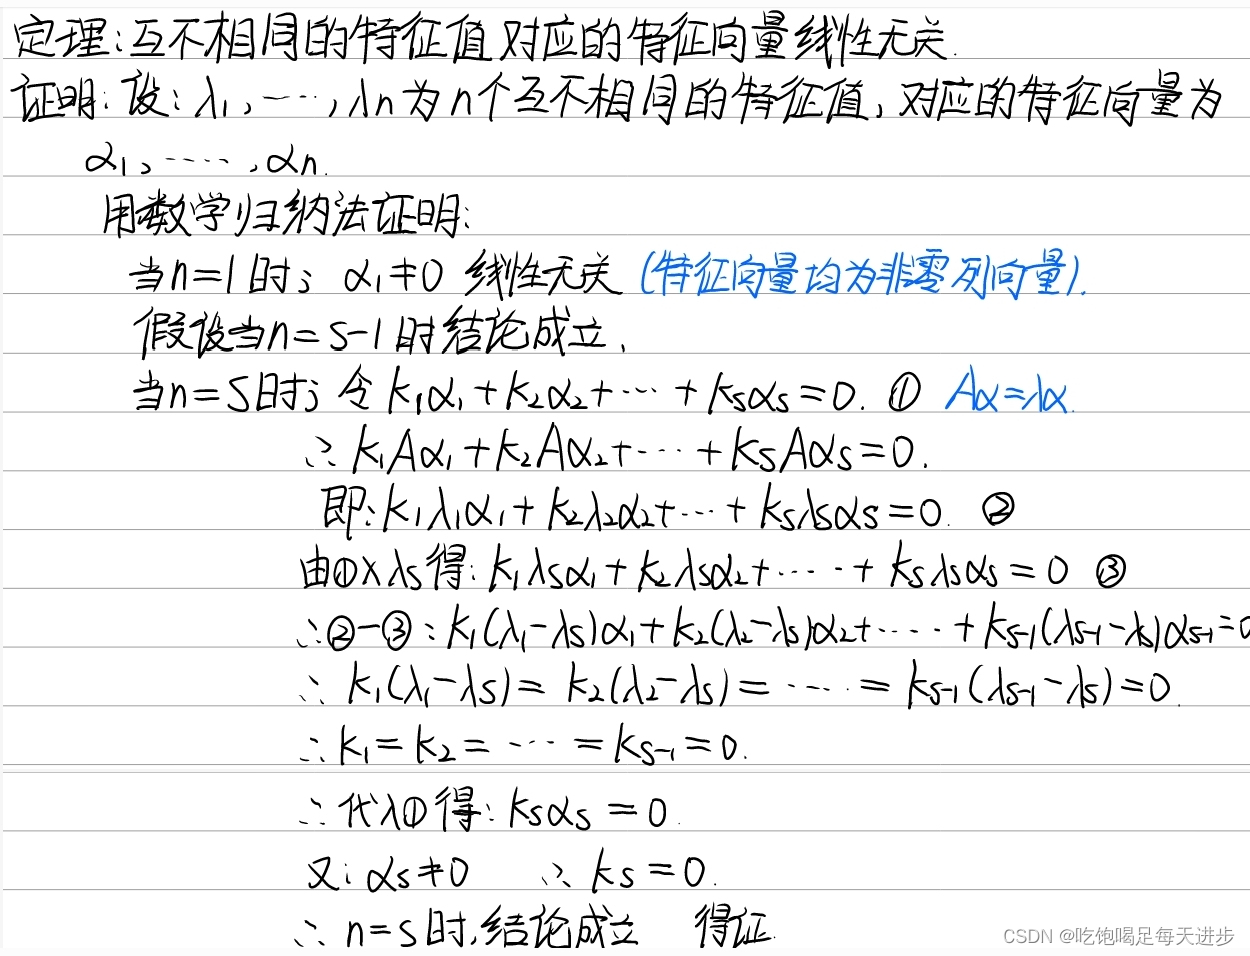 定理:互不相同的特征值对应的特征向量线性无关.
证明:设:λ₁,……,λn为n个互不相同的特征值,对应的特征向量为
α₁,……,αn.
用数学归纳法证明:
当n=1时; α₁≠0 线性无关 (特征向量均为非零列向量).
假设当n=s-1时结论成立,
当n=s时; 令 k₁α₁+k₂α₂+…+ksαs=0. ① Aα=λα.
∴ k₁Aα₁+k₂Aα₂+…+ksAαs=0.
即:k₁λ₁α₁+k₂λ₂α₂+…+ksλsαs=0. ②
由①×λs得:k₁λsα₁+k₂λsα₂+……+ksλsαs=0 ③
∴②-③:k₁(λ₁-λs)α₁+k₂(λ₂-λs)α₂+……+ks-1(λs-1-λs)αs-1=0
∴ k₁(λ₁-λs)=k₂(λ₂-λs)=……=ks-1(λs-1-λs)=0.
∴k₁=k₂=…=ks-1=0.
∴代入①得:ksαs=0.
又:αs≠0 ∴ks=0.
∴n=s时,结论成立 得证.
CSDN @吃饱喝足每天进步